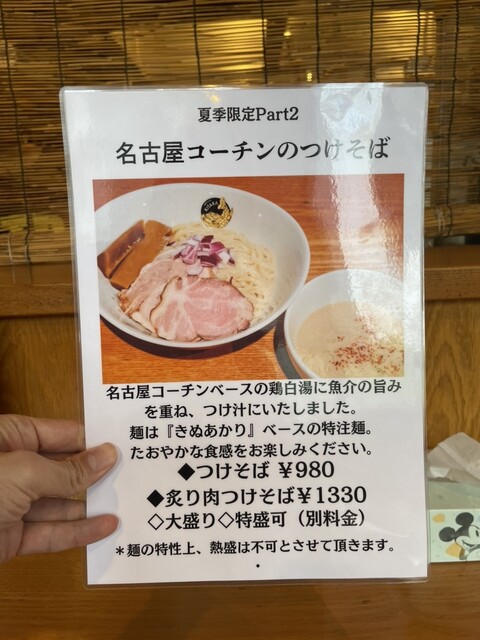 夏季限定Part2
名古屋コーチンのつけそば
名古屋コーチンベースの鶏白湯に魚介の旨み
を重ね、つけ汁にいたしました。
麺は『きぬあかり』ベースの特注麺。
たおやかな食感をお楽しみください。
◆つけそば ¥980
◆炙り肉つけそば¥1330
◇大盛り◇特盛可（別料金）
＊麺の特性上、熱盛は不可とさせて頂きます。